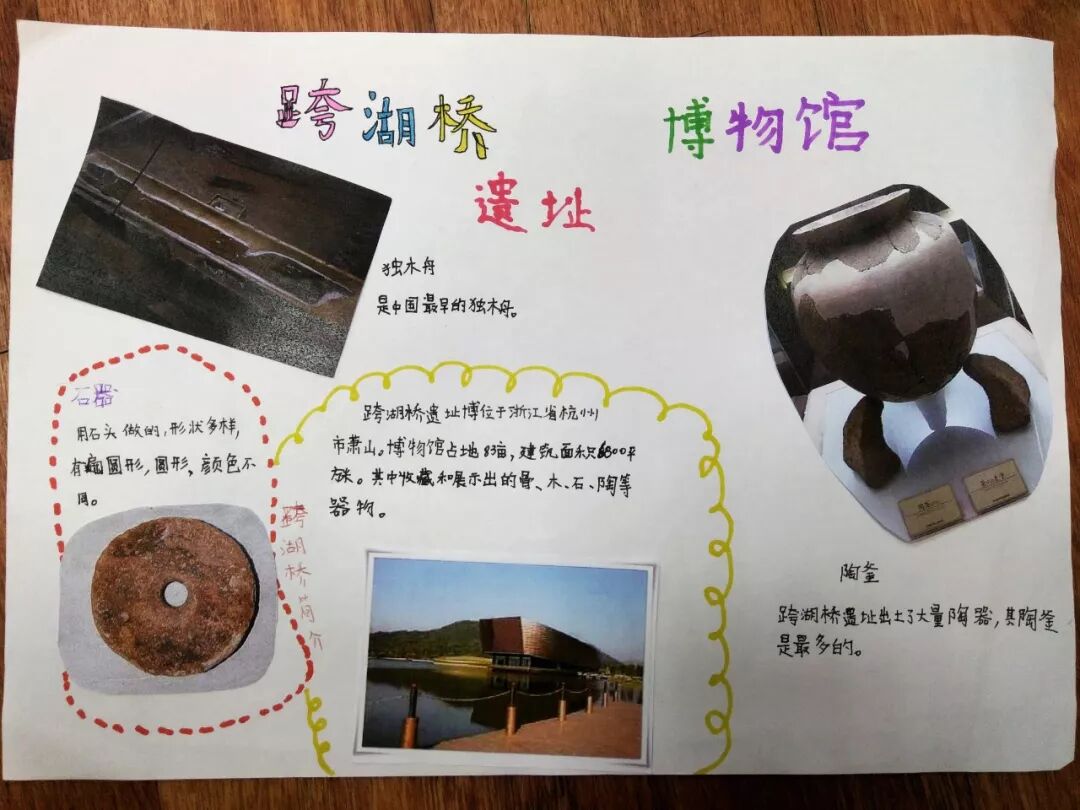 跨湖桥 博物馆
遗址
独木舟
是中国最早的独木舟。
石器
用石头做的,形状多样,
有扁圆形,圆形、颜色不
同。
跨湖桥遗址博位于浙江省杭州
市萧山。博物馆占地83亩,建筑面积6800平
方米。其中收藏和展示出的骨、木、石、陶等
器物。
跨湖桥简介
陶釜
跨湖桥遗址出土了大量陶器,其陶釜
是最多的。